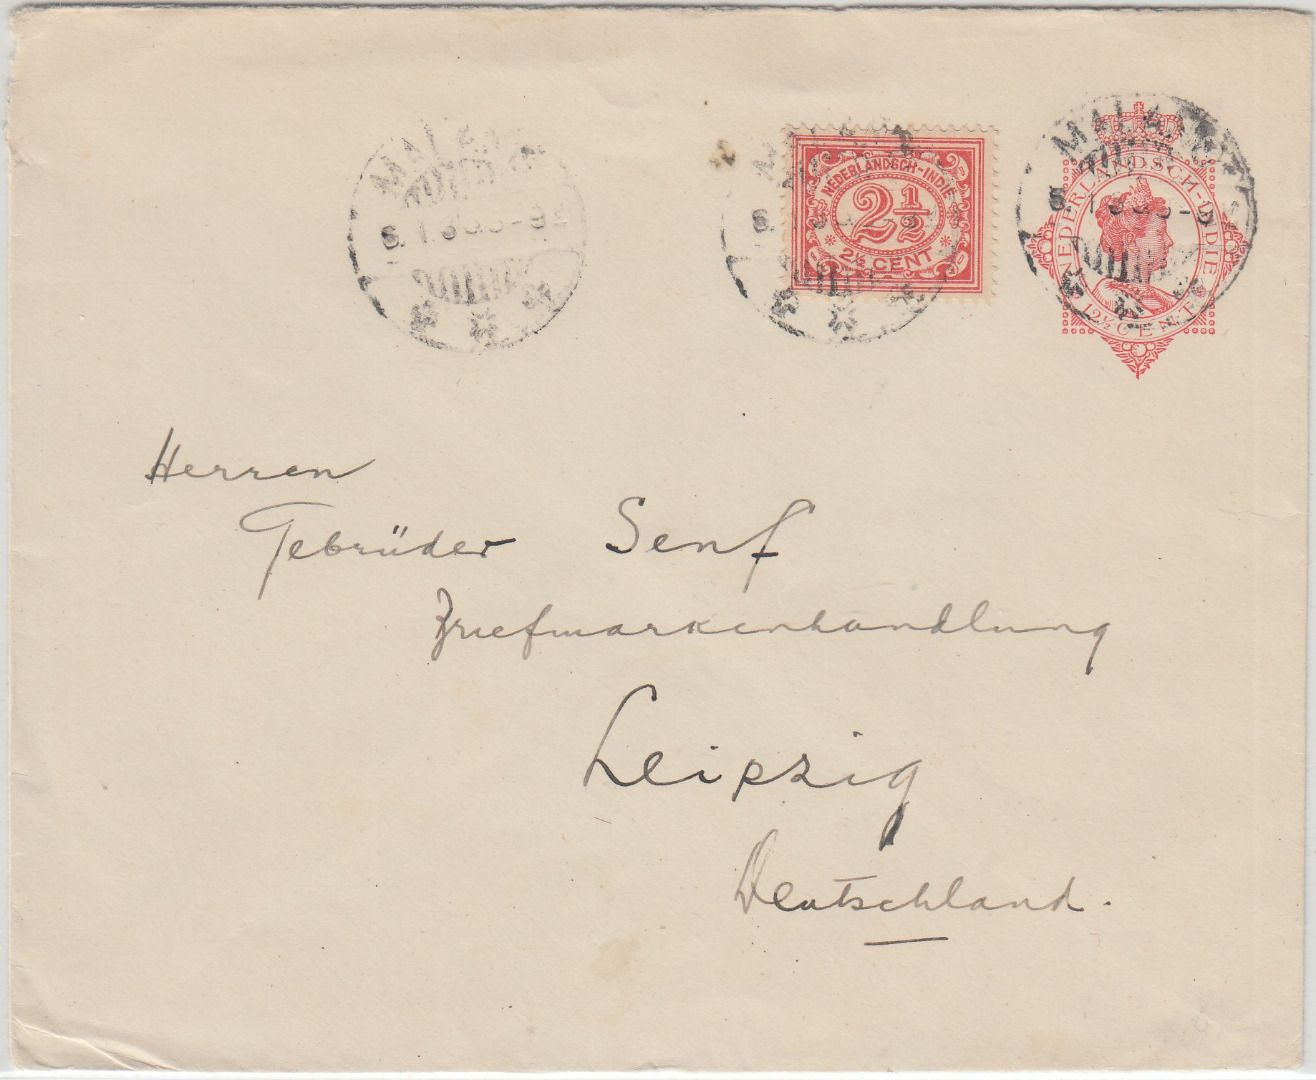 MALANG
NEDERLANDSCH-INDIË
2½
2½ CENT
MALANG
NEDERLANDSCH-INDIË
12½ CENT
Herren
Gebrüder Senf
Briefmarkenhandlung
Leipzig
Deutschland.